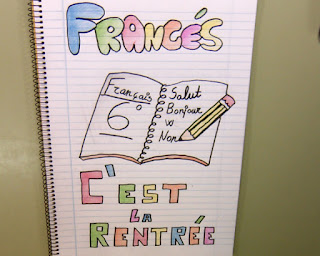 FRANCÉS
Français
6º
Salut
Bonjour
Non
C'EST
LA
RENTRÉE